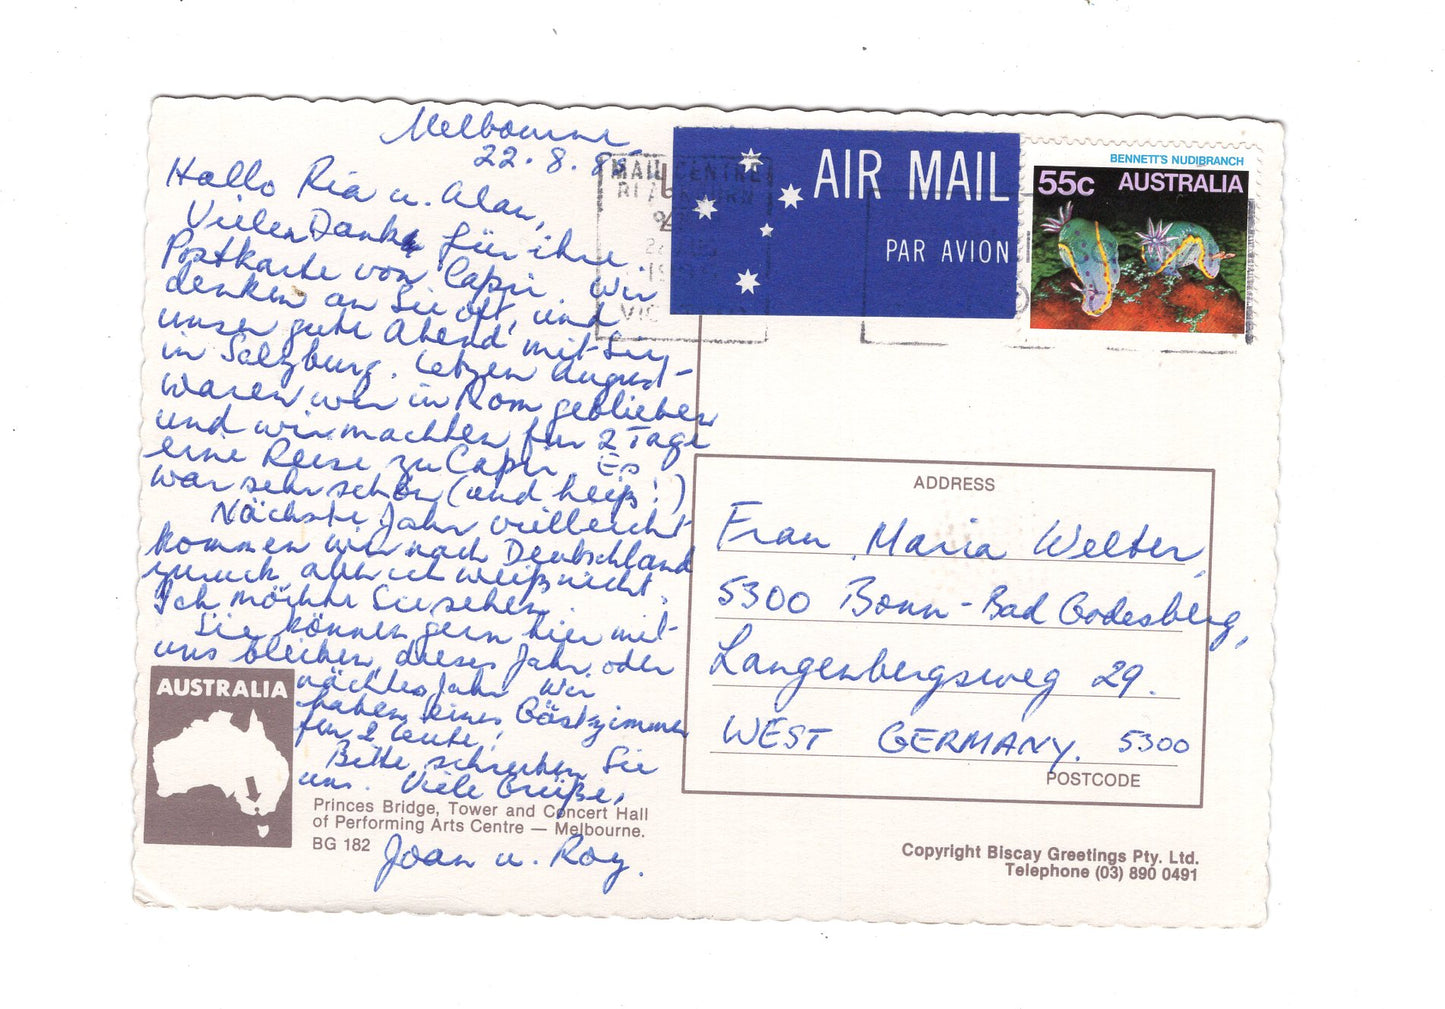 Melbourne
22.8.
Hallo Ria u. Alan,
Vielen Dank für ihre
Postkarte von Capri. Wir
denken an Sie oft, und
unser gute Abend mit Sie,
in Salzburg. Letzen August
waren wir in Rom geblieben
und wir machten für 2 Tage
eine Reise zu Capri. Es
war sehr schön (und heiß!)
Nächste Jahr vielleicht
kommen wir nach Deutschland
zurück, aber ich weiß nicht.
Ich möchte Sie sehen.
Sie können gern hier mit
uns bleiben, dieses Jahr oder
nächtes Jahr. Wir
haben eines Gästzimmer
für 2 Leute!
Bitte, schreiben Sie
uns. Viele Grüße,
Joan u. Roy.
AUSTRALIA
Princes Bridge, Tower and Concert Hall
of Performing Arts Centre — Melbourne.
BG 182
MAIL CENTRE
AIR MAIL
PAR AVION
BENNETT'S NUDIBRANCH
55c AUSTRALIA
ADDRESS
Frau Maria Welter,
5300 Bonn-Bad Godesberg,
Langenbergsweg 29.
WEST GERMANY. 5300
POSTCODE
Copyright Biscay Greetings Pty. Ltd.
Telephone (03) 890 0491